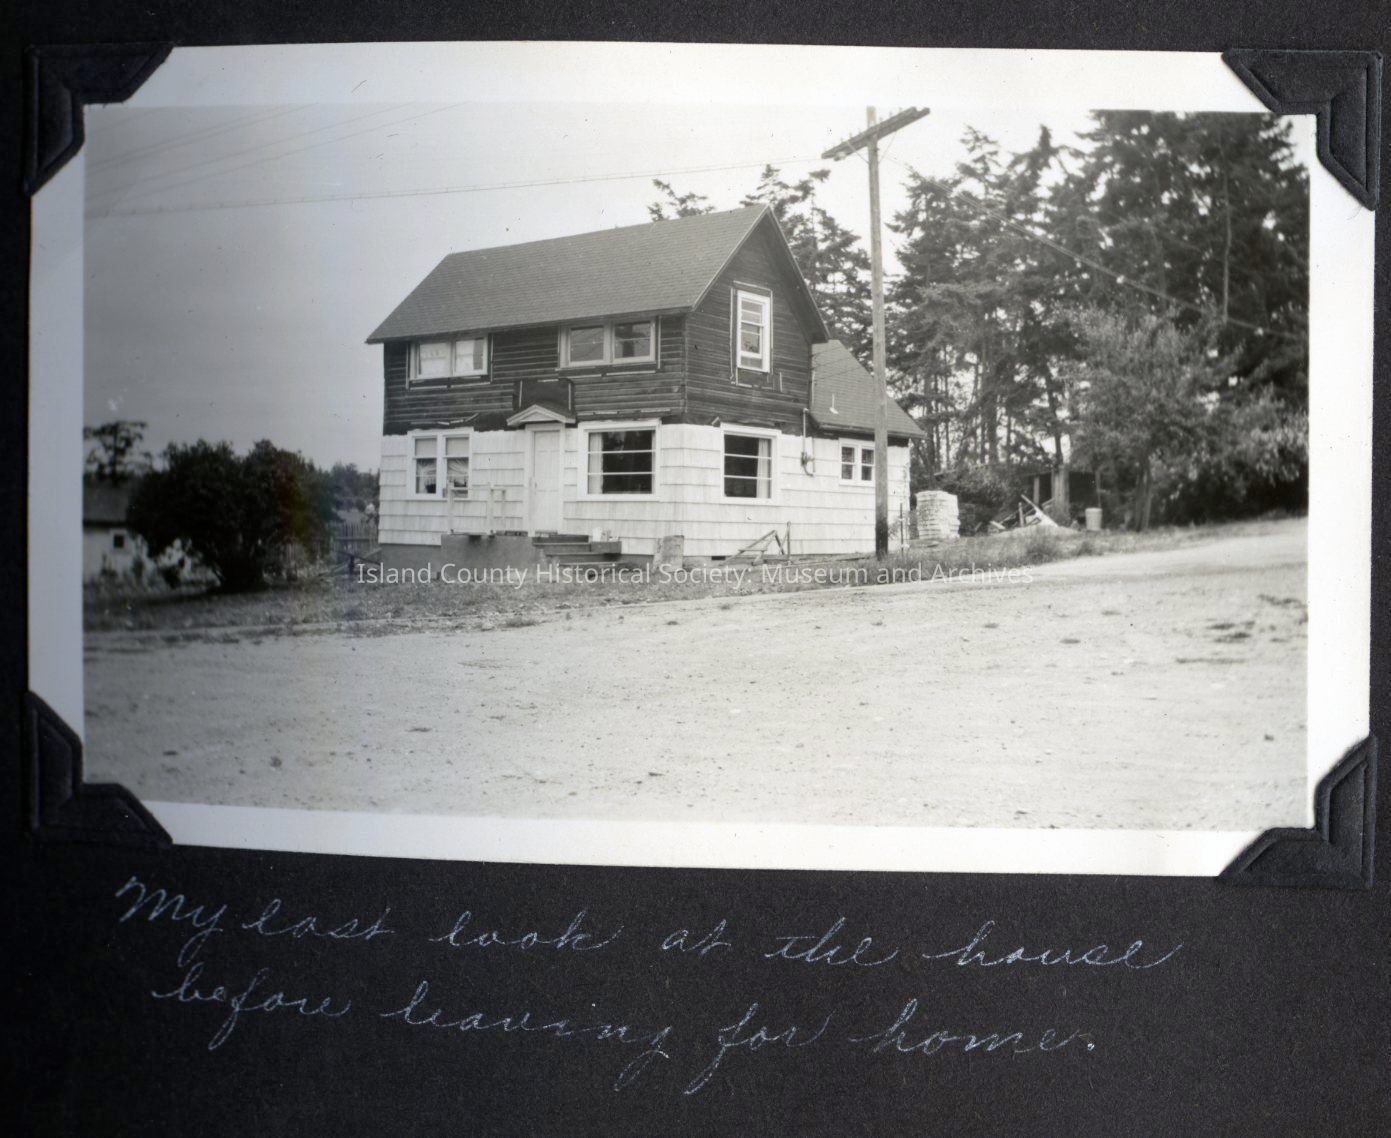 Island County Historical Society: Museum and Archives
My last look at the house
before leaving for home.